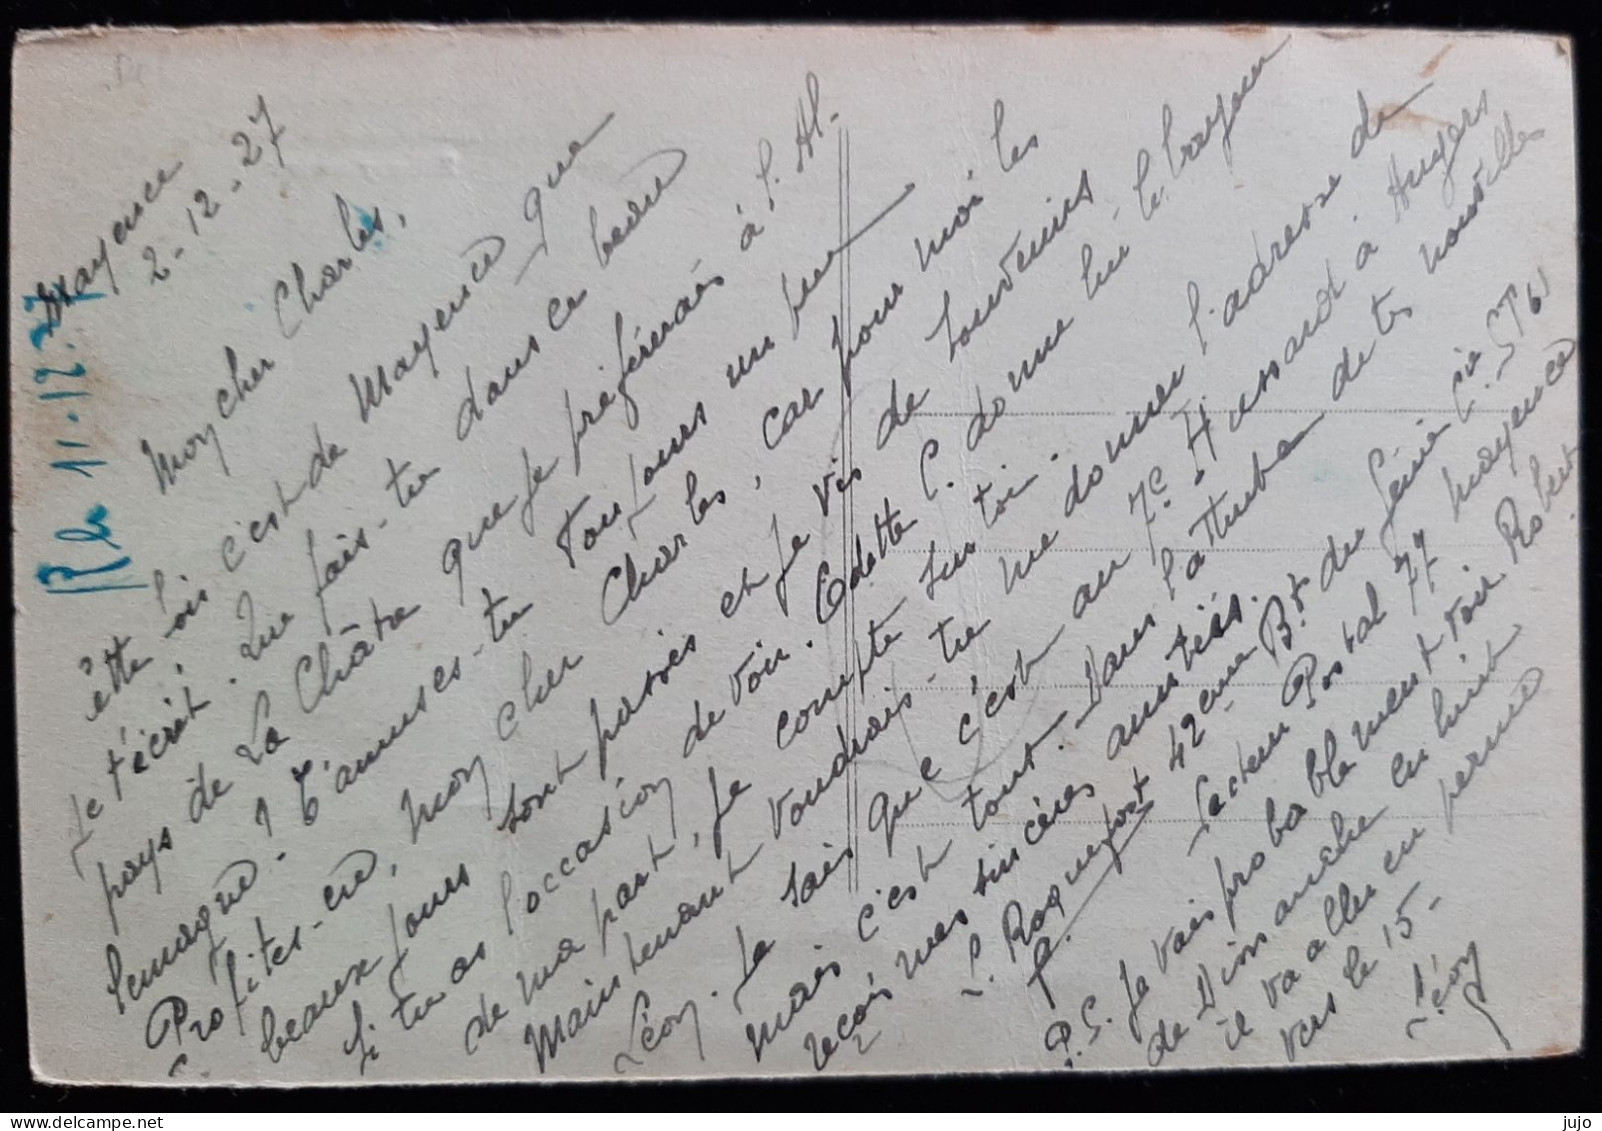 Mayence
2-12-27
Rle 11-12-27
Mon cher Charles,
Cette fois c'est de Mayence que
je t'écrit. Que fais-tu dans ce beau
pays de La Châtre que je préfèrerais à l'Al-
lemagne. ? T'amuses-tu toujours un peu
Profites-en, mon cher Charles, car pour moi les
beaux jours sont passés et je vis de souvenirs
Si tu as l'occasion de voir Odette C. donne lui le bonjour
de ma part, je compte sur toi.
Maintenant voudrais-tu me donner l'adresse de
Léon. Je sais que c'est au 7e Hussard à Angers
mais c'est tout. Dans l'attente de tes nouvelles
reçois mes sincères amitiés.
L. Roquefort 42eme Bt du Génie Cie ST 61
Secteur Postal 77 Mayence
P.S. Je vais probablement voir Robert
de Dimanche en huit
il va aller en perme
vers le 15-
Léon
delcampe.net
jujo